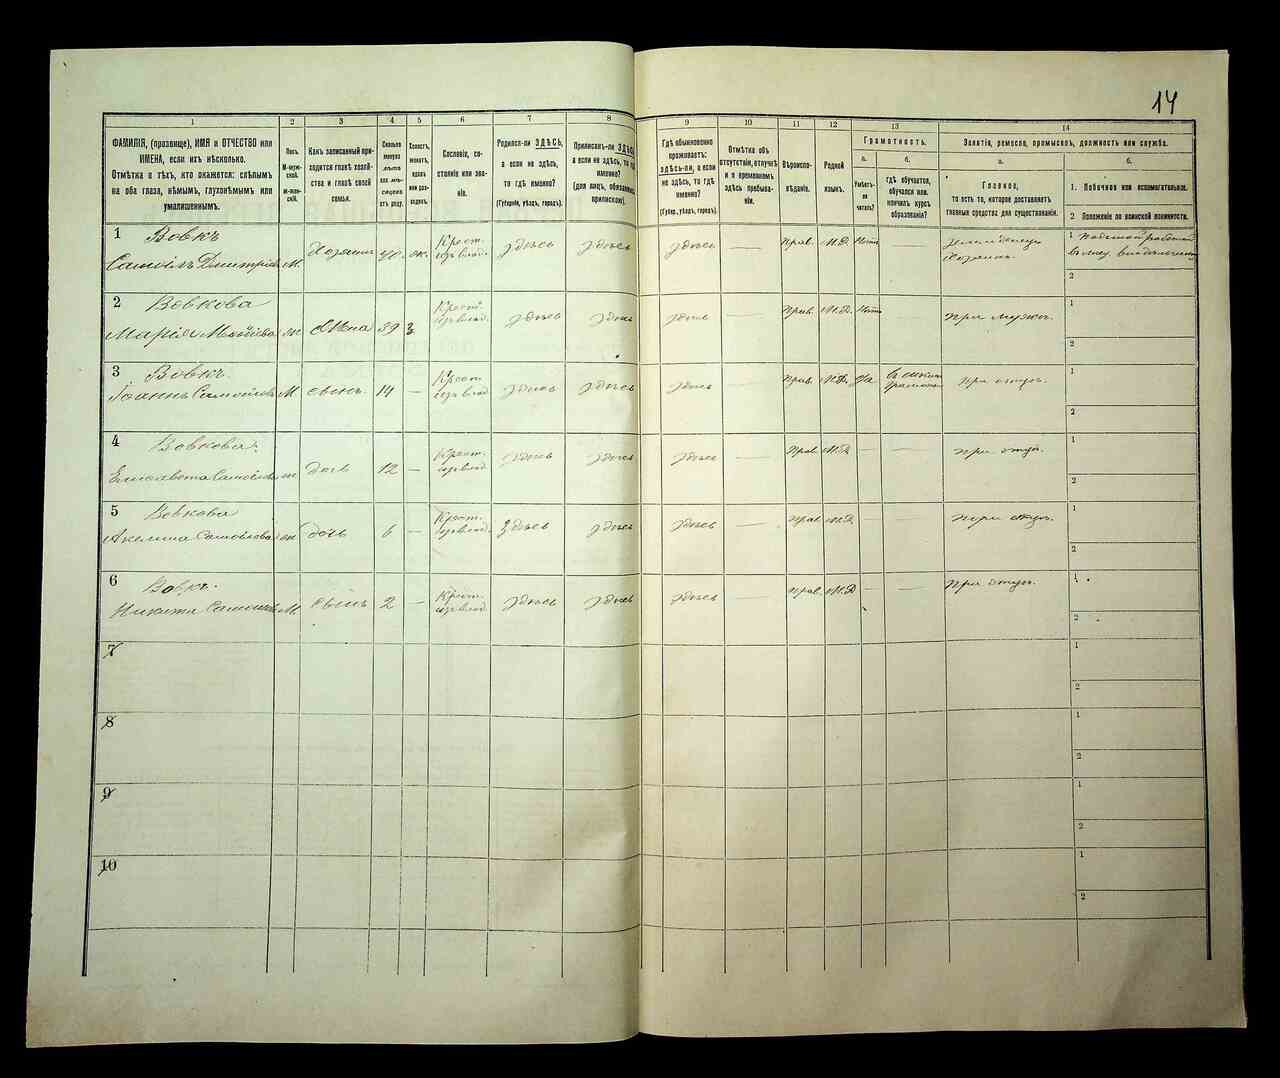 14
1 2 3 4 5 6 7 8 9 10 11 12 13 14
ФАМИЛІЯ, (прозвище), ИМЯ и ОТЧЕСТВО или
ИМЕНА, если ихъ нѣсколько.
Отмѣтка о тѣхъ, кто окажется: слѣпымъ
на оба глаза, нѣмымъ, глухонѣмымъ или
умалишеннымъ.
Полъ.
М-муж-
ской.
Ж-жен-
скій.
Какъ записанный при-
ходится главѣ хозяй-
ства и главѣ своей
семьи.
Сколько
минуло
лѣтъ
или мѣ-
сяцевъ
отъ роду.
Холостъ,
женатъ,
вдовъ
или раз-
веденъ.
Сословіе, со-
стояніе или зва-
ніе.
Родился-ли ЗДѢСЬ,
а если не здѣсь,
то гдѣ именно?
(Губернія, уѣздъ, городъ).
Приписанъ-ли ЗДѢСЬ,
а если не здѣсь, то гдѣ
именно?
(для лицъ, обязанныхъ
припискою).
Гдѣ обыкновенно
проживаетъ:
ЗДѢСЬ-ли, а если
не здѣсь, то гдѣ
именно?
(Губер., уѣздъ, городъ).
Отмѣтка объ
отсутствіи, отлучкѣ
и о временномъ
здѣсь пребыва-
ніи.
Вѣроиспо-
вѣданіе.
Родной
языкъ.
Грамотность.
а. б.
Умѣетъ-
ли
читать?
гдѣ обучается,
обучался или
кончилъ курсъ
образованія?
Занятія, ремесло, промыселъ, должность или служба.
а. б.
Главное,
то есть то, которое доставляетъ
главныя средства для существованія.
1. Побочное или вспомогательное.
2 Положеніе по воинской повинности.
1 Вовкъ Крест.
Самоилъ Дмитріевъ М. Хозяинъ 40 жен. здѣсь здѣсь здѣсь — Прав. М.Р. Нѣтъ
Хозяинъ. 1
2
2 Вовкова Крест.
Марія Ж жена 39 з. здѣсь здѣсь здѣсь — Прав. М.Р. Нѣтъ при мужѣ. 1
2
3 Вовкъ Крест.
Іоаннъ Самойловъ М. сынъ 14 — здѣсь здѣсь здѣсь — Прав. М.Р. Да при отцѣ. 1
2
4 Вовкова Крест.
Елисавета Самойлова ж дочь 12 — здѣсь здѣсь здѣсь — Прав. М.Р. — — при отцѣ. 1
2
5 Вовкова Крест.
Акелина Самойлова ж дочь 6 — здѣсь здѣсь здѣсь — Прав. М.Р. — — при отцѣ. 1
2
6 Вовкъ Крест.
Никита М. сынъ 2 — здѣсь здѣсь здѣсь — Прав. М.Р. — — при отцѣ. 1
2
7 1
2
8 1
2
9 1
2
10 1
2